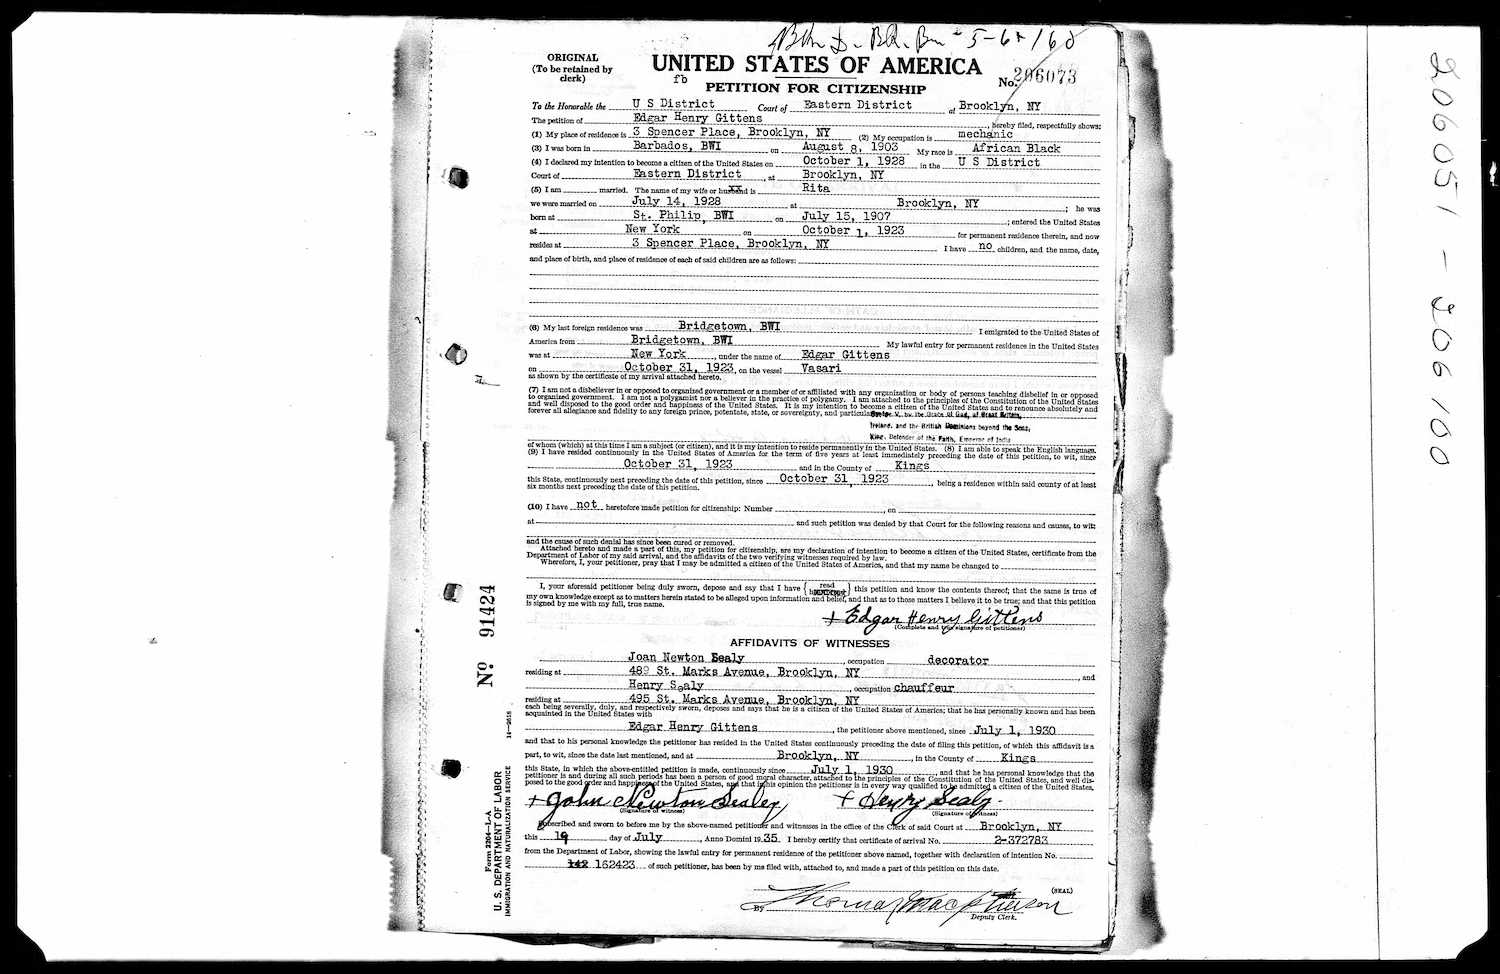 5-6 160
ORIGINAL
(To be retained by
clerk)
UNITED STATES OF AMERICA
fb
No. 206073
PETITION FOR CITIZENSHIP
To the Honorable the U S District Court of Eastern District at Brooklyn, NY
The petition of Edgar Henry Gittens, hereby filed, respectfully shows:
(1) My place of residence is 3 Spencer Place, Brooklyn, NY (2) My occupation is mechanic
(3) I was born in Barbados, BWI on August 8, 1903 My race is African Black
(4) I declared my intention to become a citizen of the United States on October 1, 1928 in the U S District
Court of Eastern District, at Brooklyn, NY
(5) I am married. The name of my wife or husband is Rita
we were married on July 14, 1928 at Brooklyn, NY; he was
born at St. Philip, BWI on July 15, 1907; entered the United States
at New York on October 1, 1923 for permanent residence therein, and now
resides at 3 Spencer Place, Brooklyn, NY I have no children, and the name, date,
and place of birth, and place of residence of each of said children are as follows:
(6) My last foreign residence was Bridgetown, BWI I emigrated to the United States of
America from Bridgetown, BWI My lawful entry for permanent residence in the United States
was at New York, under the name of Edgar Gittens
on October 31, 1923, on the vessel Vasari
as shown by the certificate of my arrival attached hereto.
(7) I am not a disbeliever in or opposed to organized government or a member of or affiliated with any organization or body of persons teaching disbelief in or opposed
to organized government. I am not a polygamist nor a believer in the practice of polygamy. I am attached to the principles of the Constitution of the United States
and well disposed to the good order and happiness of the United States. It is my intention to become a citizen of the United States and to renounce absolutely and
forever all allegiance and fidelity to any foreign prince, potentate, state, or sovereignty, and particularly to George V, by the Grace of God, of Great Britain,
Ireland, and the British Dominions beyond the Seas,
King, Defender of the Faith, Emperor of India
of whom (which) at this time I am a subject (or citizen), and it is my intention to reside permanently in the United States. (8) I am able to speak the English language.
(9) I have resided continuously in the United States of America for the term of five years at least immediately preceding the date of this petition, to wit, since
October 31, 1923 and in the County of Kings
this State, continuously next preceding the date of this petition, since October 31, 1923, being a residence within said county of at least
six months next preceding the date of this petition.
(10) I have not heretofore made petition for citizenship: Number, on
at and such petition was denied by that Court for the following reasons and causes, to wit:
and the cause of such denial has since been cured or removed.
Attached hereto and made a part of this, my petition for citizenship, are my declaration of intention to become a citizen of the United States, certificate from the
Department of Labor of my said arrival, and the affidavits of the two verifying witnesses required by law.
Wherefore, I, your petitioner, pray that I may be admitted a citizen of the United States of America, and that my name be changed to
I, your aforesaid petitioner being duly sworn, depose and say that I have {read} this petition and know the contents thereof; that the same is true of
my own knowledge except as to matters herein stated to be alleged upon information and belief, and that as to those matters I believe it to be true; and that this petition
is signed by me with my full, true name.
+ Edgar Henry Gittens
(Complete and true signature of petitioner)
AFFIDAVITS OF WITNESSES
Joan Newton Sealy, occupation decorator
residing at 489 St. Marks Avenue, Brooklyn, NY, and
Henry Sealy, occupation chauffeur
residing at 495 St. Marks Avenue, Brooklyn, NY
each being severally, duly, and respectively sworn, deposes and says that he is a citizen of the United States of America; that he has personally known and has been
acquainted in the United States with
Edgar Henry Gittens, the petitioner above mentioned, since July 1, 1930
and that to his personal knowledge the petitioner has resided in the United States continuously preceding the date of filing this petition, of which this affidavit is a
part, to wit, since the date last mentioned, and at Brooklyn, NY, in the County of Kings
this State, in which the above-entitled petition is made, continuously since July 1, 1930, and that he has personal knowledge that the
petitioner is and during all such periods has been a person of good moral character, attached to the principles of the Constitution of the United States, and well dis-
posed to the good order and happiness of the United States, and that in his opinion the petitioner is in every way qualified to be admitted a citizen of the United States.
+ John Newton Sealey + Henry Sealy.
(Signature of witness) (Signature of witness)
Subscribed and sworn to before me by the above-named petitioner and witnesses in the office of the Clerk of said Court at Brooklyn, NY
this 19 day of July, Anno Domini 1935. I hereby certify that certificate of arrival No. 2-372783
from the Department of Labor, showing the lawful entry for permanent residence of the petitioner above named, together with declaration of intention No.
142 162423 of such petitioner, has been by me filed with, attached to, and made a part of this petition on this date.
(SEAL)
By
Deputy Clerk.
No 91424
14-2618
Form 2204-L-A
U. S. DEPARTMENT OF LABOR
IMMIGRATION AND NATURALIZATION SERVICE
206051 - 206100